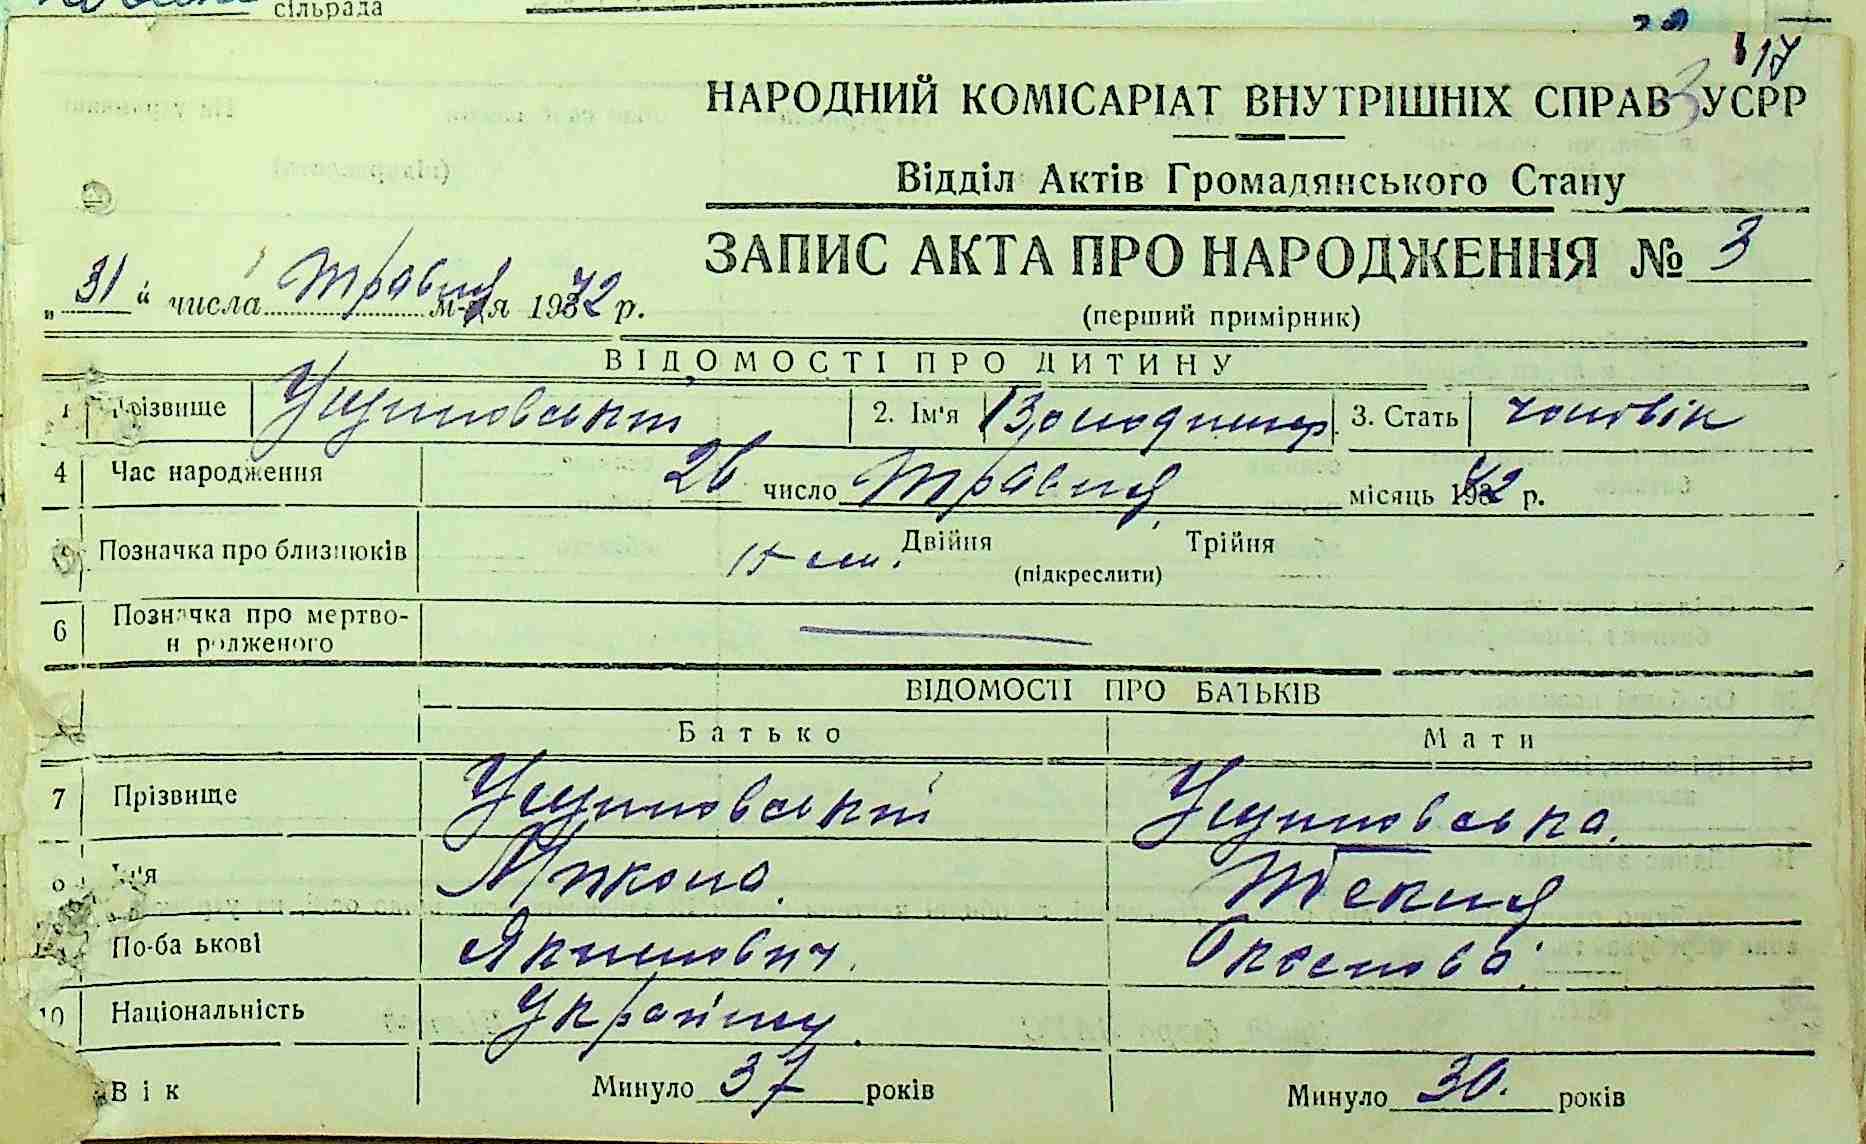 сільрада
17
3
НАРОДНИЙ КОМІСАРІАТ ВНУТРІШНІХ СПРАВ УСРР
Відділ Актів Громадянського Стану
ЗАПИС АКТА ПРО НАРОДЖЕННЯ № 3
„31" числа Травня м-ця 1942 р.
(перший примірник)
ВІДОМОСТІ ПРО ДИТИНУ
1 Прізвище 2. Ім'я Володимир 3. Стать чоловік
4 Час народження 26 число Травня місяць 1942 р.
Позначка про близнюків Двійня Трійня
(підкреслити)
6 Позначка про мертво-
н родженого
ВІДОМОСТІ ПРО БАТЬКІВ
Батько Мати
7 Прізвище
8 Ім'я Микола Текля
По-ба ькові Якимович
10 Національність
Вік Минуло 37 років Минуло 30 років